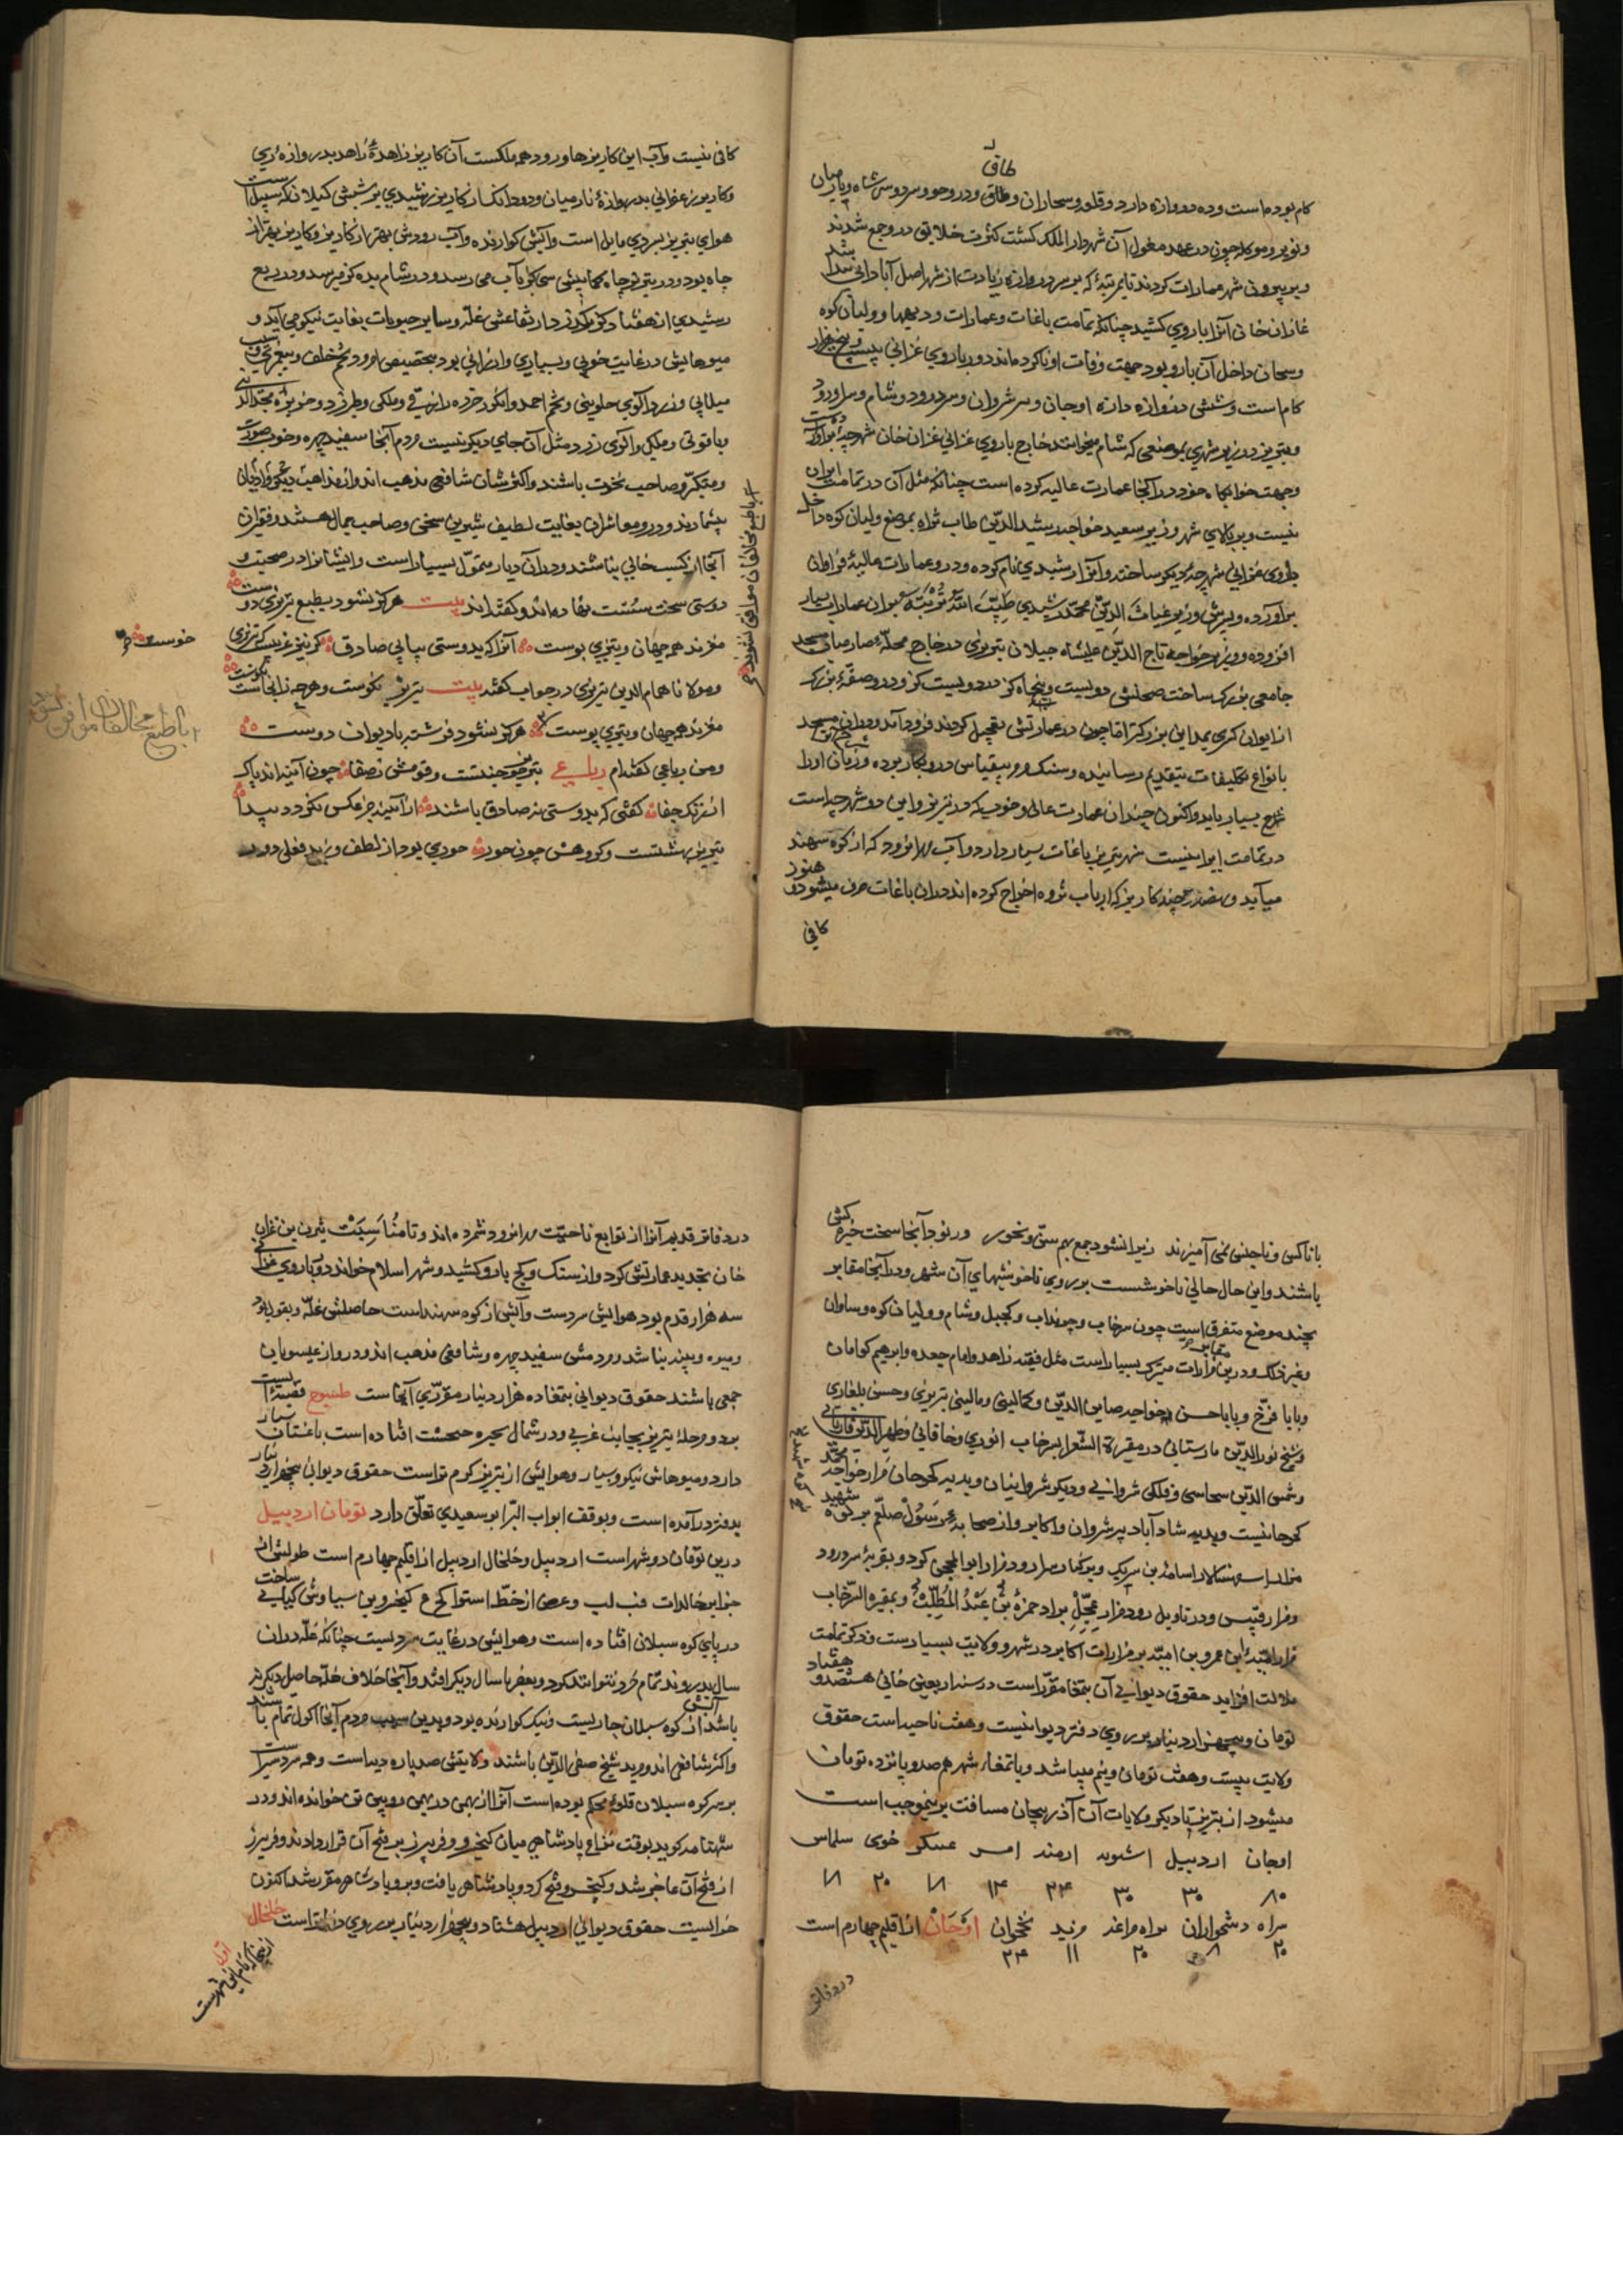 طاق
کام بوده است و ده دروازه دارد و قلعه و سنجاران و طاق و دروجو و سردوسی شاه و نارمیان
و نوبر و موکله چون در عهد مغول آن شهر دار الملک گشت کثرت خلایق درو جمع شدند
و بر بیرون شهر عمارات کردند تا بمرتبهٔ که بر هر دروازه زیادت از شهر اصل آبادانی پیدا شد
غازان خان آنرا باروی کشید چنانکه تمامت باغات و عمارات و دیهها و ولیان کوه
و سنجان داخل آن بارو بود جهت وفات او ناکرده ماند و دور باروی غزانی بیست و پنجهزار
کام است و شش دروازه دارد اوجان و سر شروان و سردرود و شام و سراورود
و تبریز در زیر شهری بموضعی که شام میخوانند خارج باروی غزانی غزان خان شهرچهٔ برآورده است
و جهت خوابگاه خود در آنجا عمارات عالیه کرده است چنانکه مثل آن در تمامت ایران
نیست و بر بالای شهر وزیر سعید خواجه رشید الدین طاب ثراه بموضع ولیان کوه داخل
باروی غزانی شهرچهٔ دیگر ساخته و آنرا رشیدی نام کرده و درو عمارات عالیهٔ فراوان
برآورده و پسرش وزیر غیاث الدین محمد رشیدی طیب الله تربته بر آن عمارات بسیار
افزوده و وزیر خواجه تاج الدین علیشاه جیلان تبریزی در خارج محله نارمیان مسجد
جامعی بزرگ ساخت صحنش دویست و پنجاه کز در دویست کز و درو صفهٔ بزرگ
از ایوان کسری بمداین بزرگتر اما چون در عمارتش تعجیل کردند فرود آمد و در آن مسجد
بانواع تکلیفات بتقدیم رسانیده و سنگ مرمر بیقیاس درو بکار برده و زبان او را
شرح بسیار باید و اکنون چندان عمارت عالی و خوب که در تبریز و این دو شهرچه است
در تمامت ایران نیست شهر تبریز باغات بسیار دارد و آب مهرانرود که از کوه سهند
میآید و نهصد و چند کاریز که ارباب ثروه اخراج کرده اند در آن باغات صرف میشود و هنوز
کافی
کافی نیست و آب این کاریزها و رود همه ملکست الا کاریز زاهده زاهد بدروازه ری
و کاریز زعفرانی بدروازهٔ نارمیان و دو دانک از کاریز رشیدی بر ششش کیلان که سبیل است
هوای تبریز بسردی مایل است و آبش گوارنده و آب رودش بهتر از کاریز و کاریز بهتر از
چاه بود و در تبریز چاه کمابیش سی کز بآب می رسد و در شام بده کز میرسد و در ربع
رشیدی از هفتاد کز بگذرد ارتفاعش غله و سایر حبوبات بغایت نیکو می آید و
میوهایش در غایت خوبی و بسیاری و ارزانی بود بتخصیص امرود تخم خلف و پیغمبری و سیب
میلانی و زرد آلوی حلوینی و تخم احمد و انگور خرده رازقی و ملکی و طبرزد و خربزه مجد الدینی
و یاقوتی و ملکی و آلوی زرد مثل آن جای دیگر نیست مردم آنجا سفید چهره و خوب صورت
و متکبر و صاحب نخوت باشند و اکثرشان شافعی مذهب اند و از مذاهب دیگر و ادیان
بیشمارند و درو معاشران بغایت لطیف شیرین سخن و صاحب جمال هستند و فقیران
آنجا از کسب خالی نباشند و در آن دیار متمول بسیار است و ایشانرا در صحبت و
دوستی سخت سست نهاده اند و گفته اند بیت هرگز نشود بطبع تبریزی دوست
مغزند همه جهان و تبریزی پوست آنرا که بدوستی نیابی صادق گر نیز غریبست که تبریزی
خوست
و مولانا همام الدین تبریزی در جواب گفته بیت تبریز نکوست و هرچه زانجاست نکوست
مغزند همه جهان و تبریزی پوست هرگز نشود فرشته با دیوان دوست
با طبع مخالفان موافق نشوند
و من رباعی گفته ام رباعی تبریز چو جنتست و قومش ز صفا چون آینه اند پاک
از زنگ جفا گفتی که بدوستی نه صادق باشند از آینه جز عکس نگردد پیدا
تبریز بهشتست و گروهش چون حور حوری بود از لطف و ز بد فعلی دور
با طبع مخالفان موافق نشود
با ناکس و ناجنس نمی آمیزند زیرا نشود جمع بهم ستر و نحور و رنود آنجا سخت خیره کش
باشند و این حال حالی ناخوشست بر روی ناخوشیهای آن شهر و در آنجا مقابر
بچند موضع متفرق است چون سرخاب و چرنداب و کجیل و شام و ولیان کوه و ساوان
و غیر ذلک و درین مزارات متبرک بسیار است مثل فقیه زاهد و امام جعده و ابرهیم کواهان
و بابا فرخ و بابا حسن و خواجه صاین الدین و کمالینی و مالینی تبریزی و حسن بلغاری
و شیخ نور الدین مارستانی در مقبرة الشعرا بسرخاب انوری و خاقانی و ظهیر الدین فاریابی
و شمس الدین سجاسی و فلکی شروانی و دیگر شروانیان و بدیه کجوجان مزار خواجه محمد
کجوجانیست و بدیه شاد آباد پیر شروان و اکابر و از صحابه رسول صلعم بر کوه سهند
مزار اسامة بن شریک و بر کنار سراورود مزار ابو المحجن کرد و بقریهٔ سردرود
و مزار قیس و در تاویل رود مزار عجل برادر حمزهٔ بن عبد المطلب و بمقبره سرخاب
مزار امیة بن عمرو بن امیه بر مزارات اکابر در شهر و ولایت بسیارست و ذکر تمامت
ملالت افزاید حقوق دیوانی آن بتمغا مقرر است در سنه اربعین خانی هشتصد و هفتاد
تومان و پنجهزار دینار بر روی دفتر دیوانیست و هفت ناحیه است حقوق
ولایت بیست و هفت تومان و نیم میباشد و با تمغاء شهر هم صد و پانزده تومان
میشود از تبریز تا دیگر ولایات آن آذربیجان مسافت برینموجب است
اوجان اردبیل اشنویه ارمند اهر عسکر خوی سلماس
۸۰ ۳۰ ۳۰ ۲۴ ۱۴ ۱۸ ۲۰ ۱۸
سراه دشخواران سراه مراغه مرند نخجوان اوجان از اقلیم چهارم است
۲۰ ۸ ۲۰ ۱۱ ۲۴
در دفاتر
در دفاتر قدیم آنرا از توابع ناحیت مهرانرود شمرده اند غزان
خان تجدید عمارتش کرد و از سنگ و کچ بارو کشید و شهر اسلام خواند دور باروی غزانی
سه هزار قدم بود هوایش سردست و آبش از کوه سهند است حاصلش غله و بقول بود
و میوه و پنبه نباشد مردمش سفید چهره و شافعی مذهب اند و درو از عیسویان
جمعی باشند حقوق دیوانی بتمغا ده هزار دینار مقرری آنجاست طسوج قصبهٔ است
بدو مرحلهٔ تبریز بجانب غربی و در شمال بحیره چیچست افتاده است باغستان بسیار
دارد و میوهاش نیکو و بسیار و هوایش از تبریز گرم تر است حقوق دیوانی پنجهزار دینار
بدفتر درآمده است و بوقف ابواب البر ابو سعیدی تعلق دارد تومان اردبیل
درین تومان دو شهر است اردبیل و خلخال اردبیل از اقلیم چهارم است طولش از
جزایر خالدات فب لب و عرض از خط استوا لح ع کیخسرو بن سیاوش کیانی ساخت
در پای کوه سبلان افتاده است و هوایش در غایت سردیست چنانکه غله در آن
سال بدروند تمام خرد نتوانند کرد و بعضی با سال دیگر افتد و آنجا خلاف غله حاصل دیگر نیز
باشد آبش از کوه سبلان جاریست و نیک گوارنده بود و بدین سبب مردم آنجا اکول تمام باشند
و اکثر شافعی اند و مرید شیخ صفی الدین باشند ولایتش صد پاره دیه است و همه سردسیر است
بر سر کوه سبلان قلعهٔ محکم بوده است آنرا از بهمن دز بهمن و روبین دز خوانده اند و در
شهنامه گوید بوقت نزاع پادشاهی میان کیخسرو و فریبرز بر فتح آن قرار دادند و فریبرز
از فتح آن عاجز شد و کیخسرو فتح کرد و پادشاهی یافت و برو پادشاهی مقرر شد اکنون
خرابست حقوق دیوانی اردبیل هشتاد و پنجهزار دینار بر روی دفتر است خلخال